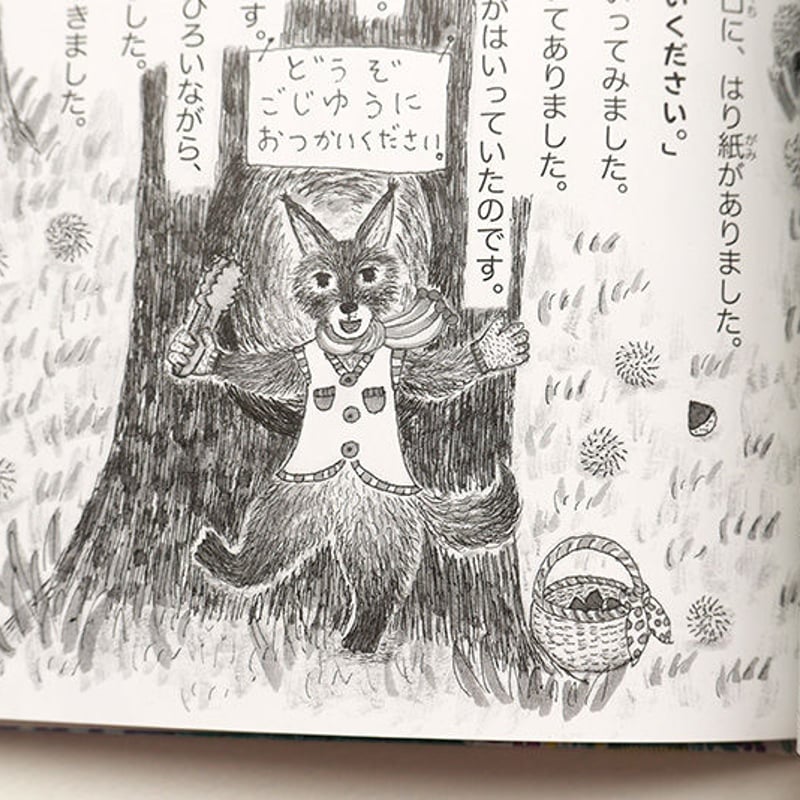 口に、はり紙がありました。
いください。」
いってみました。
てありました。
がはいっていたのです。
。
す。
ひろいながら、
した。
きました。
どうぞ
ごじゆうに
おつかいください。